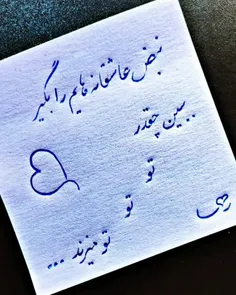 نبض عاشقانه هایم را بگیر
..ببین چقدر
تو
تو
تو میزند ...